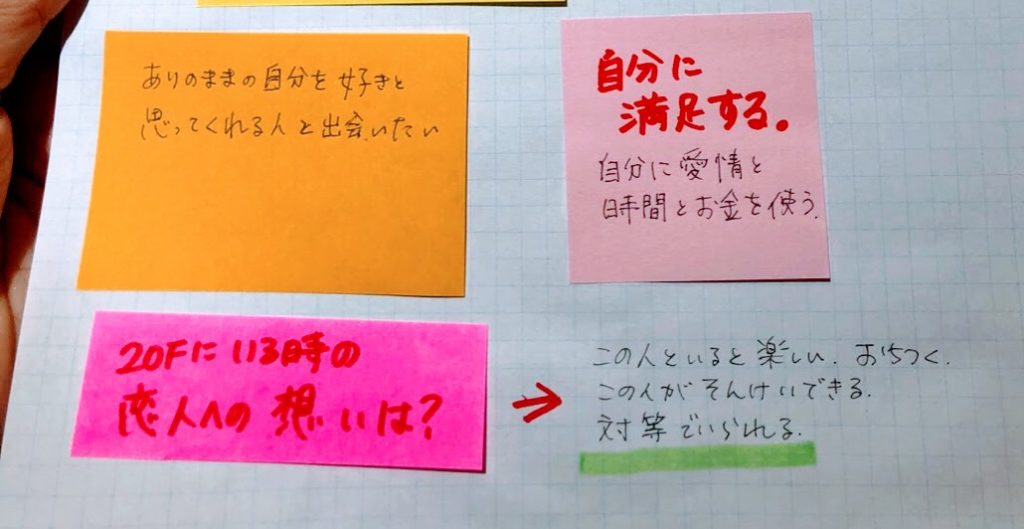 ありのままの自分を好きと
思ってくれる人と出会いたい
自分に
満足する。
自分に愛情と
時間とお金を使う.
20Fにいる時の
恋人への想いは?
→
この人といると楽しい. おちつく.
この人がそんけいできる.
対等でいられる.